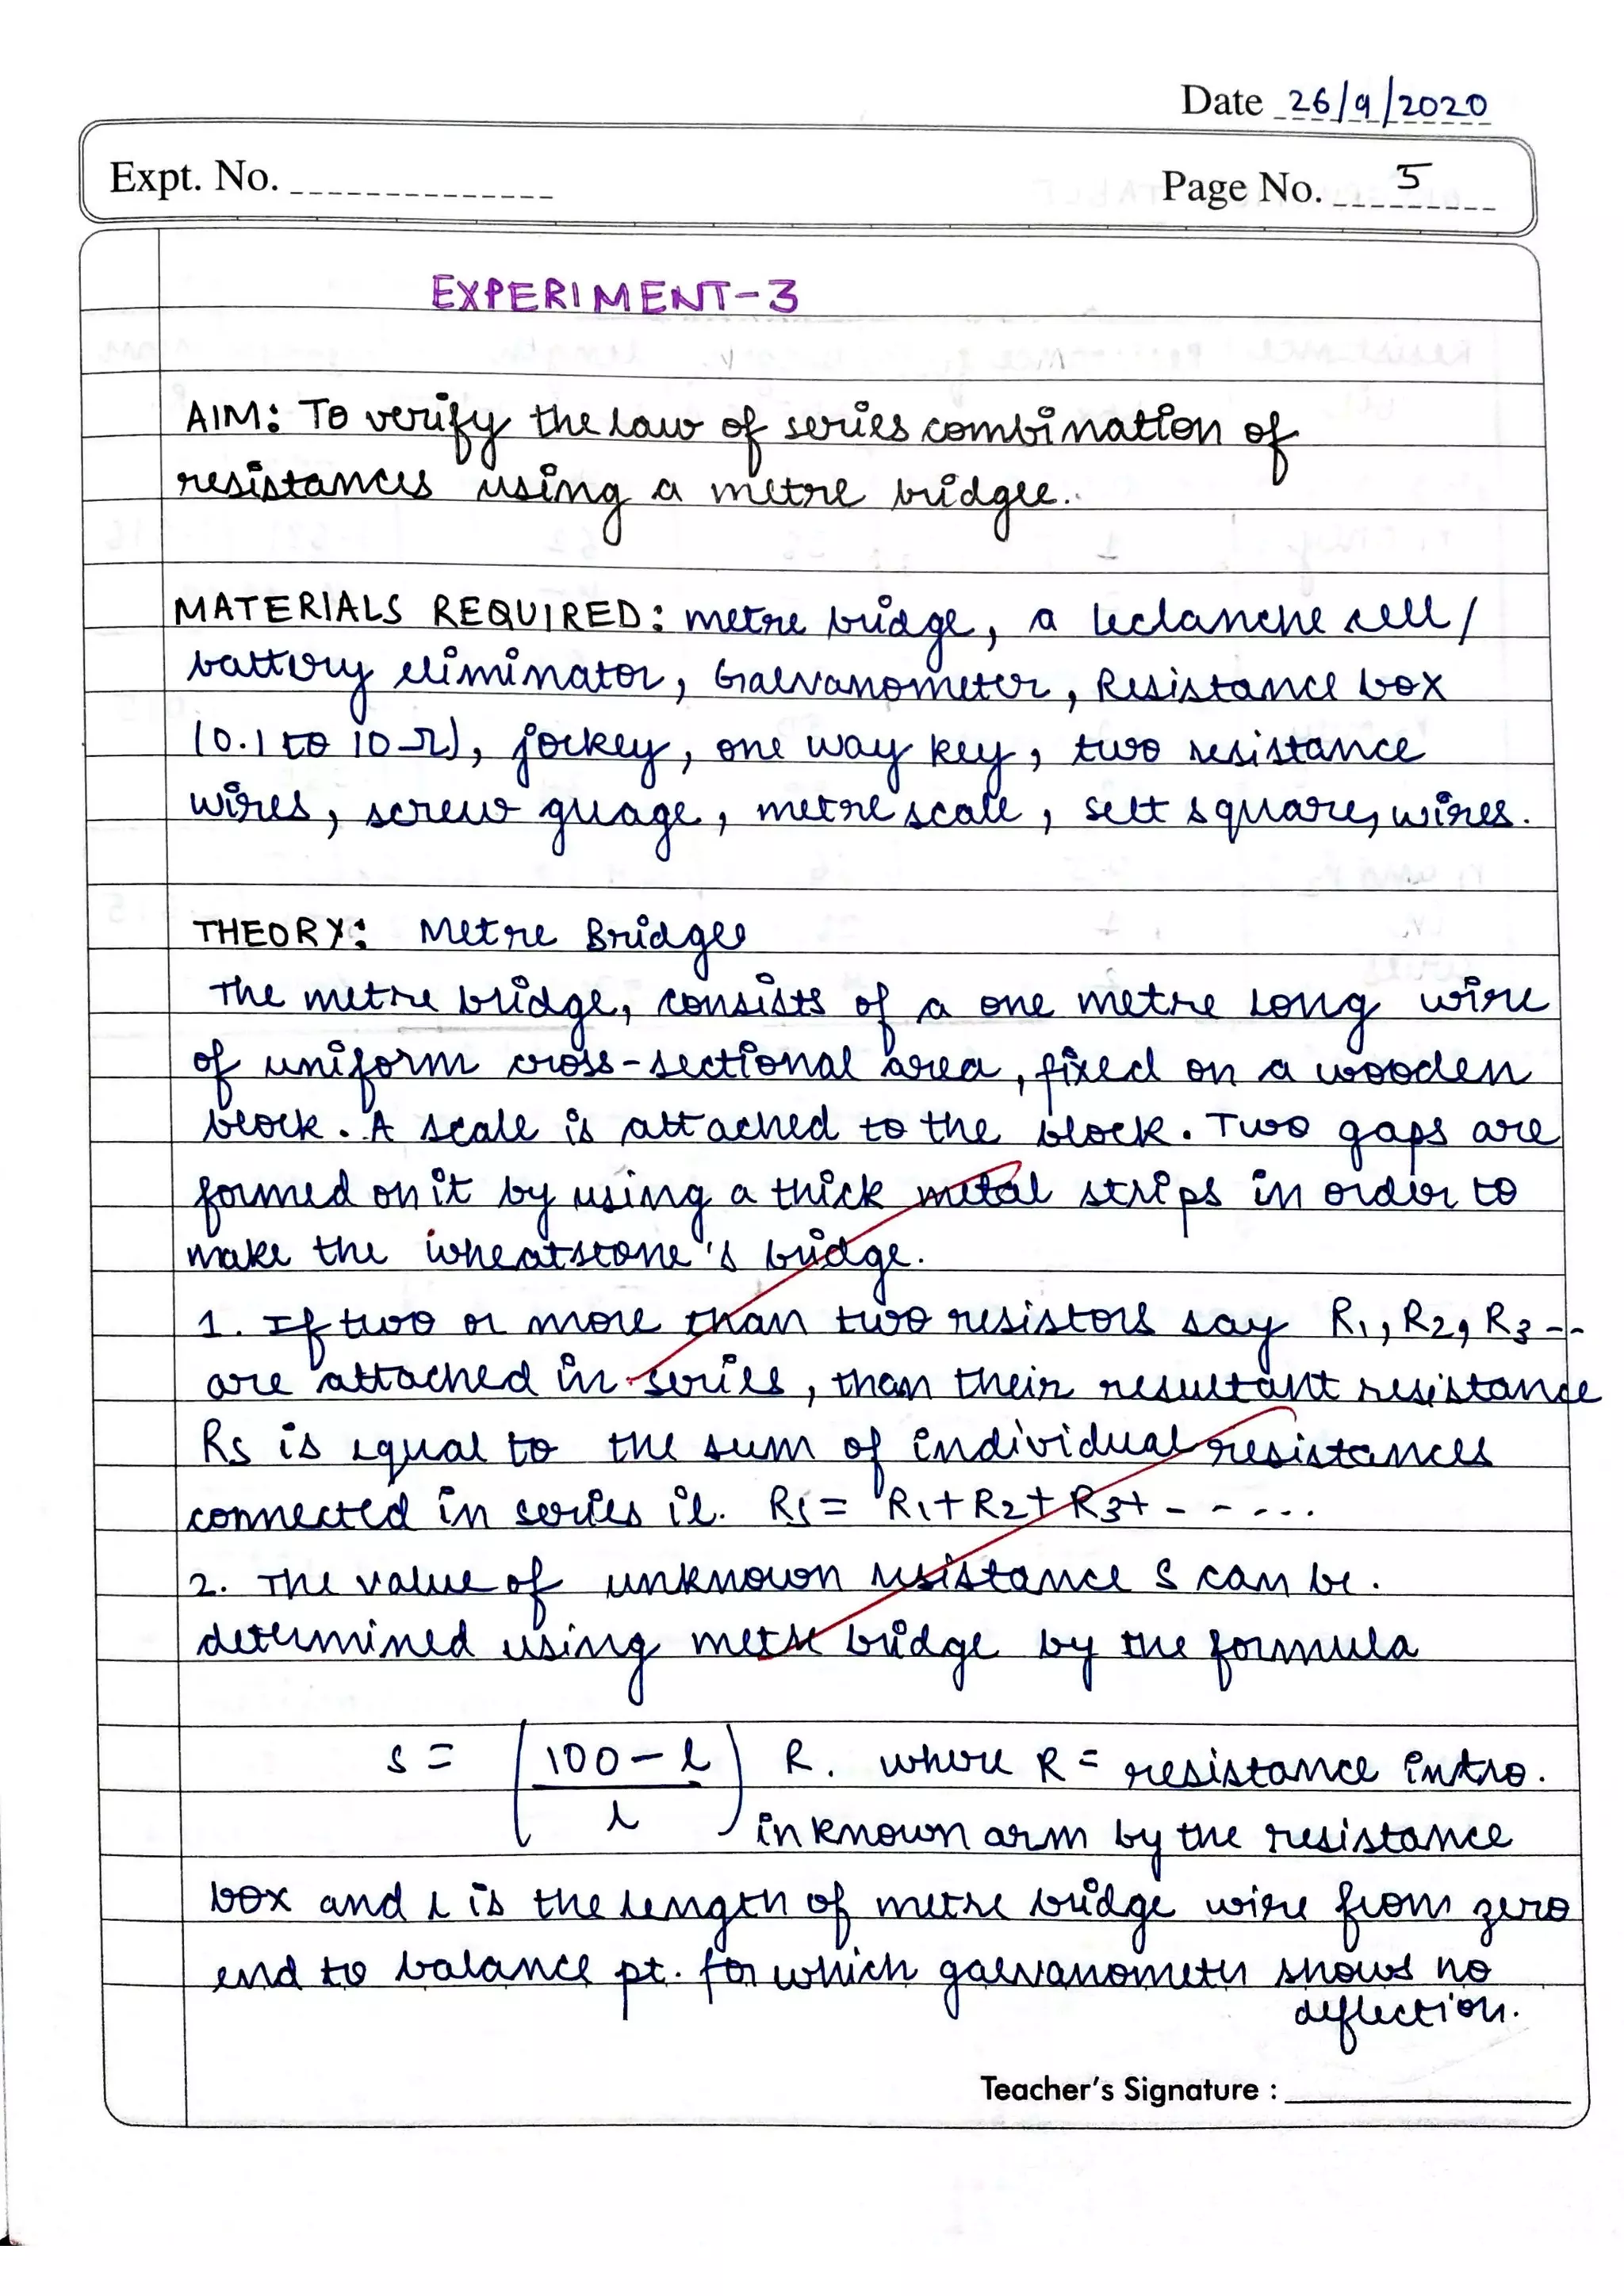 Date 26/9/2020
Expt. No.
Page No. 5
EXPERIMENT-3
AIM: To verify the law of series combination of
resistances using a metre bridge.
MATERIALS REQUIRED: metre bridge, a leclanche cell/
battery eliminator, Galvanometer, Resistance box
(0.1 to 10 Ω), jockey, one way key, two resistance
wires, screw guage, metre scale, sett square, wires.
THEORY: Metre Bridge
The metre bridge, consists of a one metre long wire
of uniform cross-sectional area, fixed on a wooden
block. A scale is attached to the block. Two gaps are
formed on it by using a thick metal strips in order to
make the wheatstone's bridge.
1. If two or more than two resistors say R1, R2, R3 --
are attached in series, than their resultant resistance
Rs is equal to the sum of individual resistances
connected in series ie. Rs = R1 + R2 + R3 + - - - ...
2. The value of unknown resistance S can be.
determined using metre bridge by the formula
S = (100 - l / l) R. where R = resistance intro.
in known arm by the resistance
box and l is the length of metre bridge wire from zero
end to balance pt. for which galvanometer shows no
deflection.
Teacher's Signature :